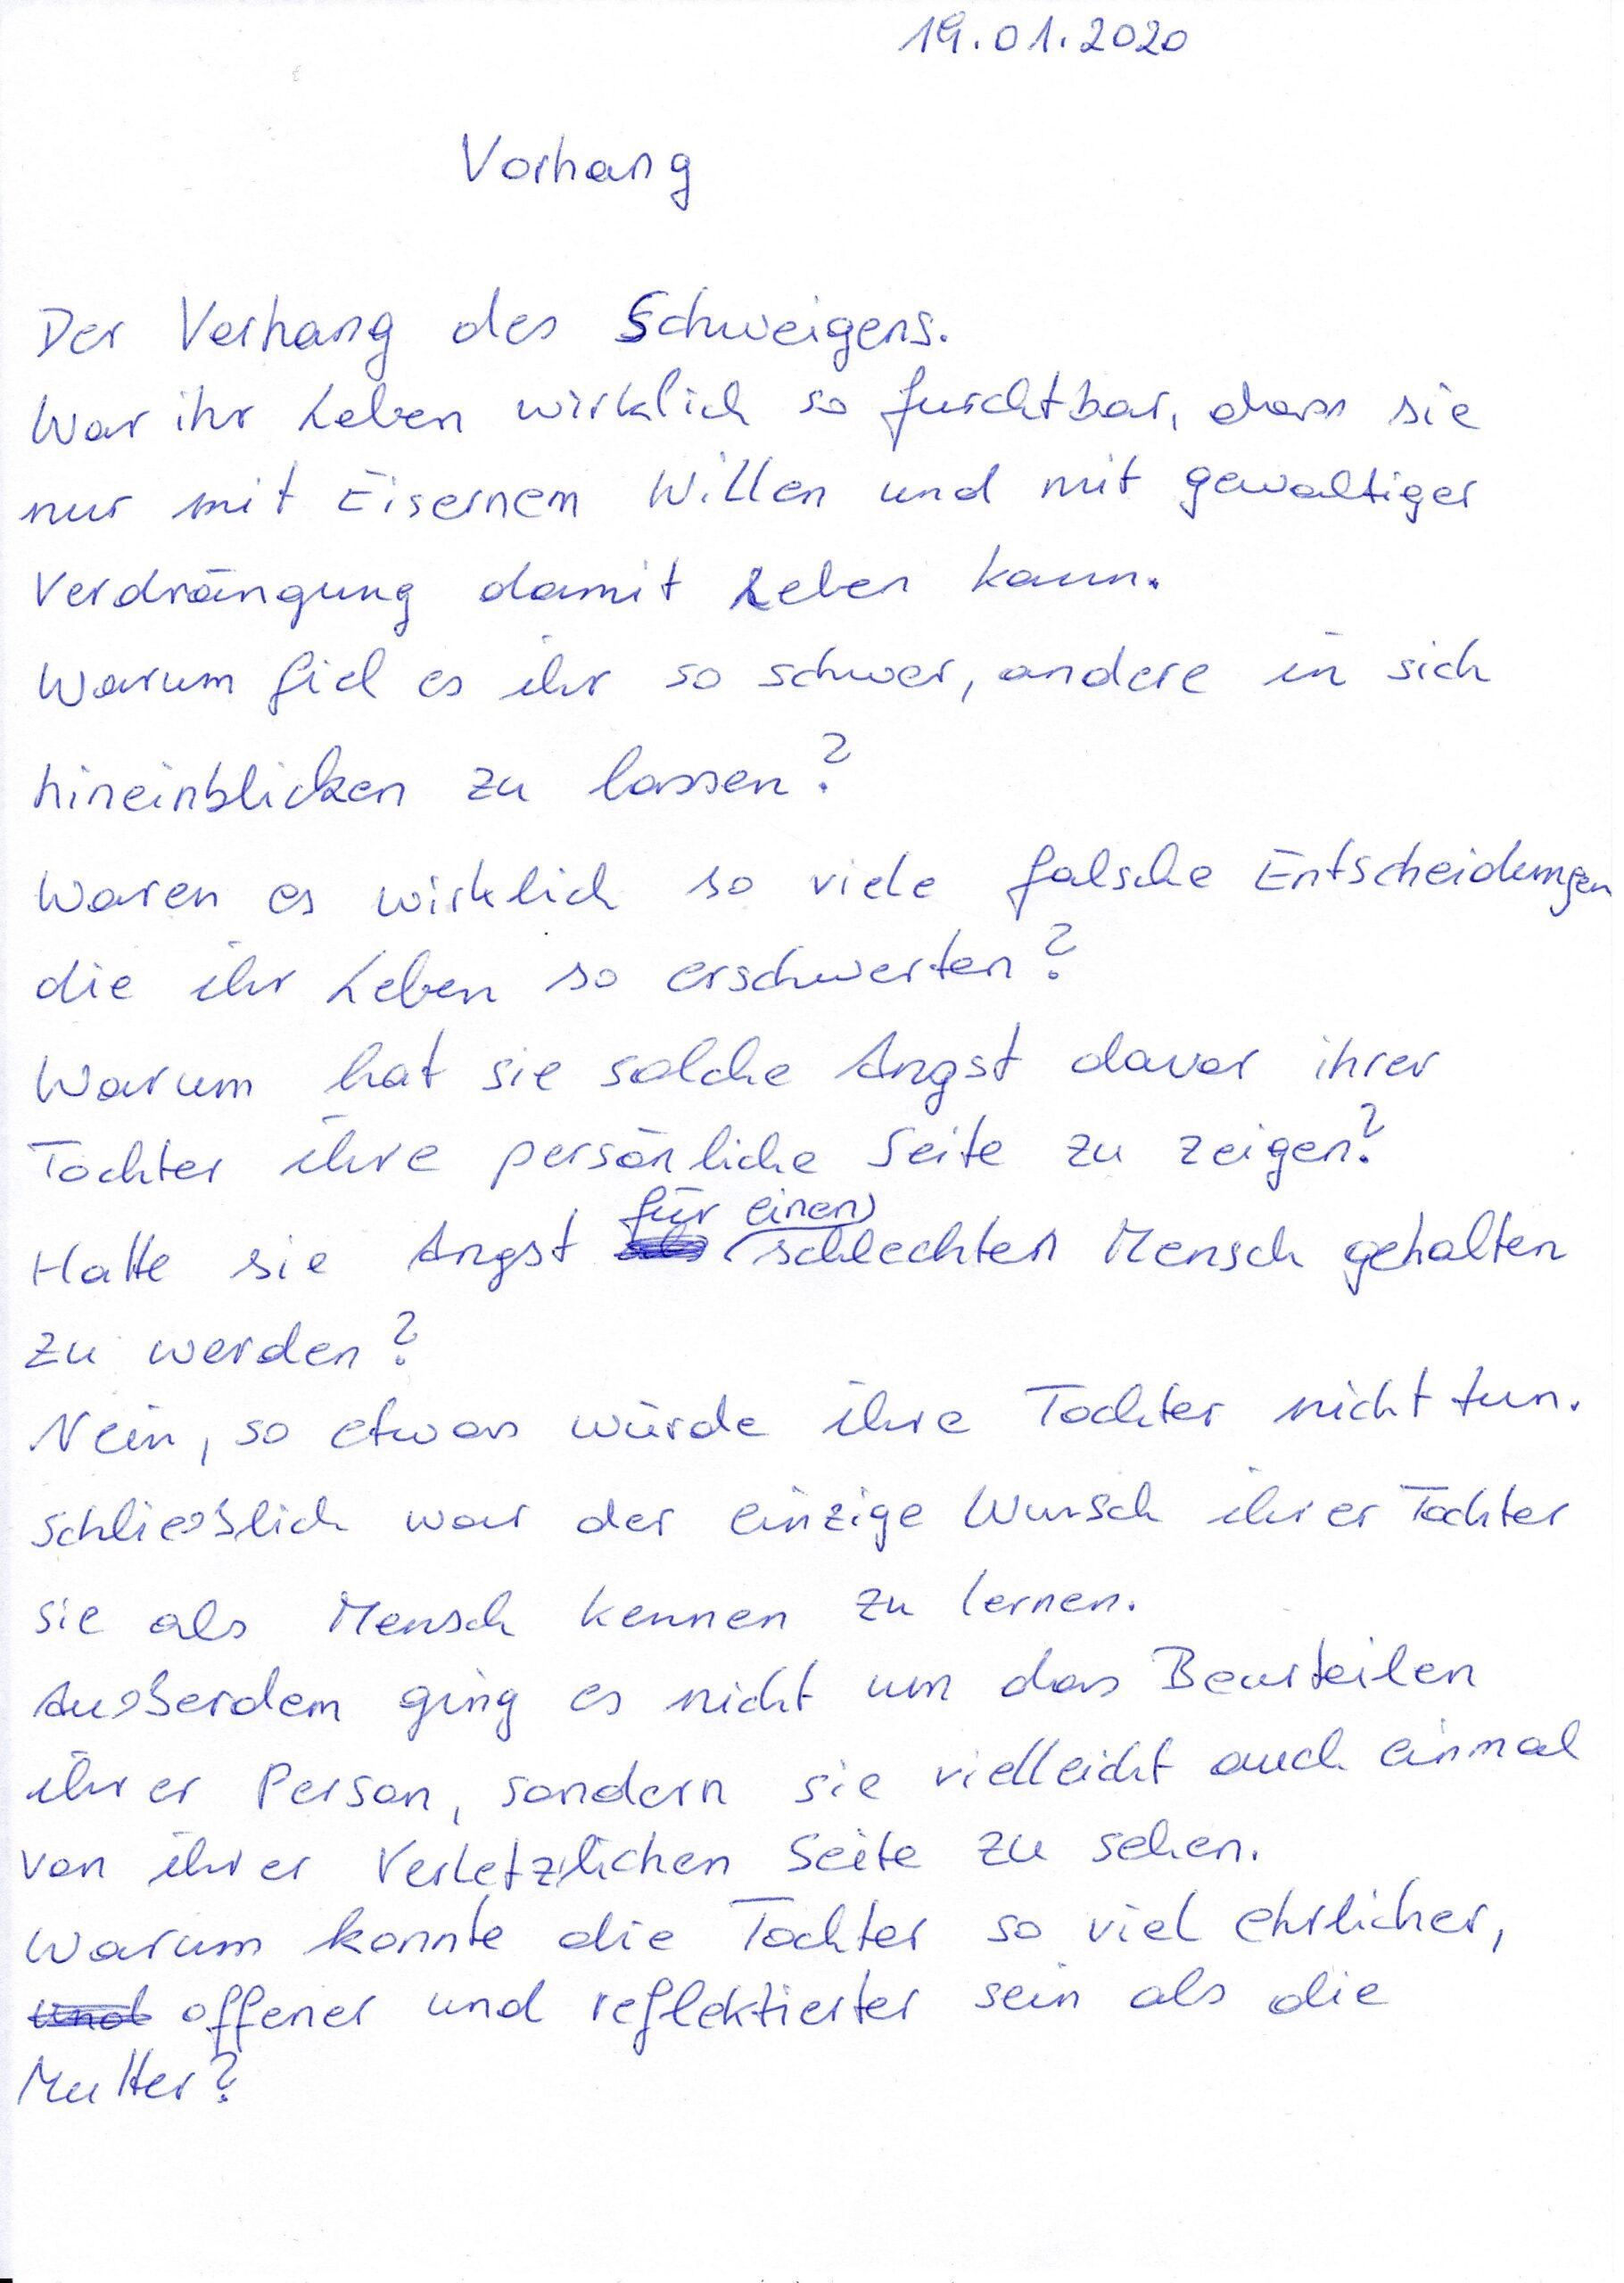 19.01.2020
Vorhang
Der Vorhang des Schweigens.
War ihr Leben wirklich so furchtbar, dass sie
nur mit Eisernem Willen und mit gewaltiger
Verdrängung damit Leben kann.
Warum fiel es ihr so schwer, andere in sich
hineinblicken zu lassen?
Waren es wirklich so viele falsche Entscheidungen
die ihr Leben so erschwerten?
Warum hat sie solche Angst davor ihrer
Tochter ihre persönliche Seite zu zeigen?
für einen
Hatte sie Angst schlechten Mensch gehalten
zu werden?
Nein, so etwas würde ihre Tochter nicht tun.
schliesslich war der einzige Wunsch ihrer Tochter
sie als Mensch kennen zu lernen.
Ausserdem ging es nicht um das Beurteilen
ihrer Person, sondern sie vielleicht auch einmal
von ihrer Verletzlichen Seite zu sehen.
Warum konnte die Tochter so viel ehrlicher,
und offener und reflektierter sein als die
Mutter?